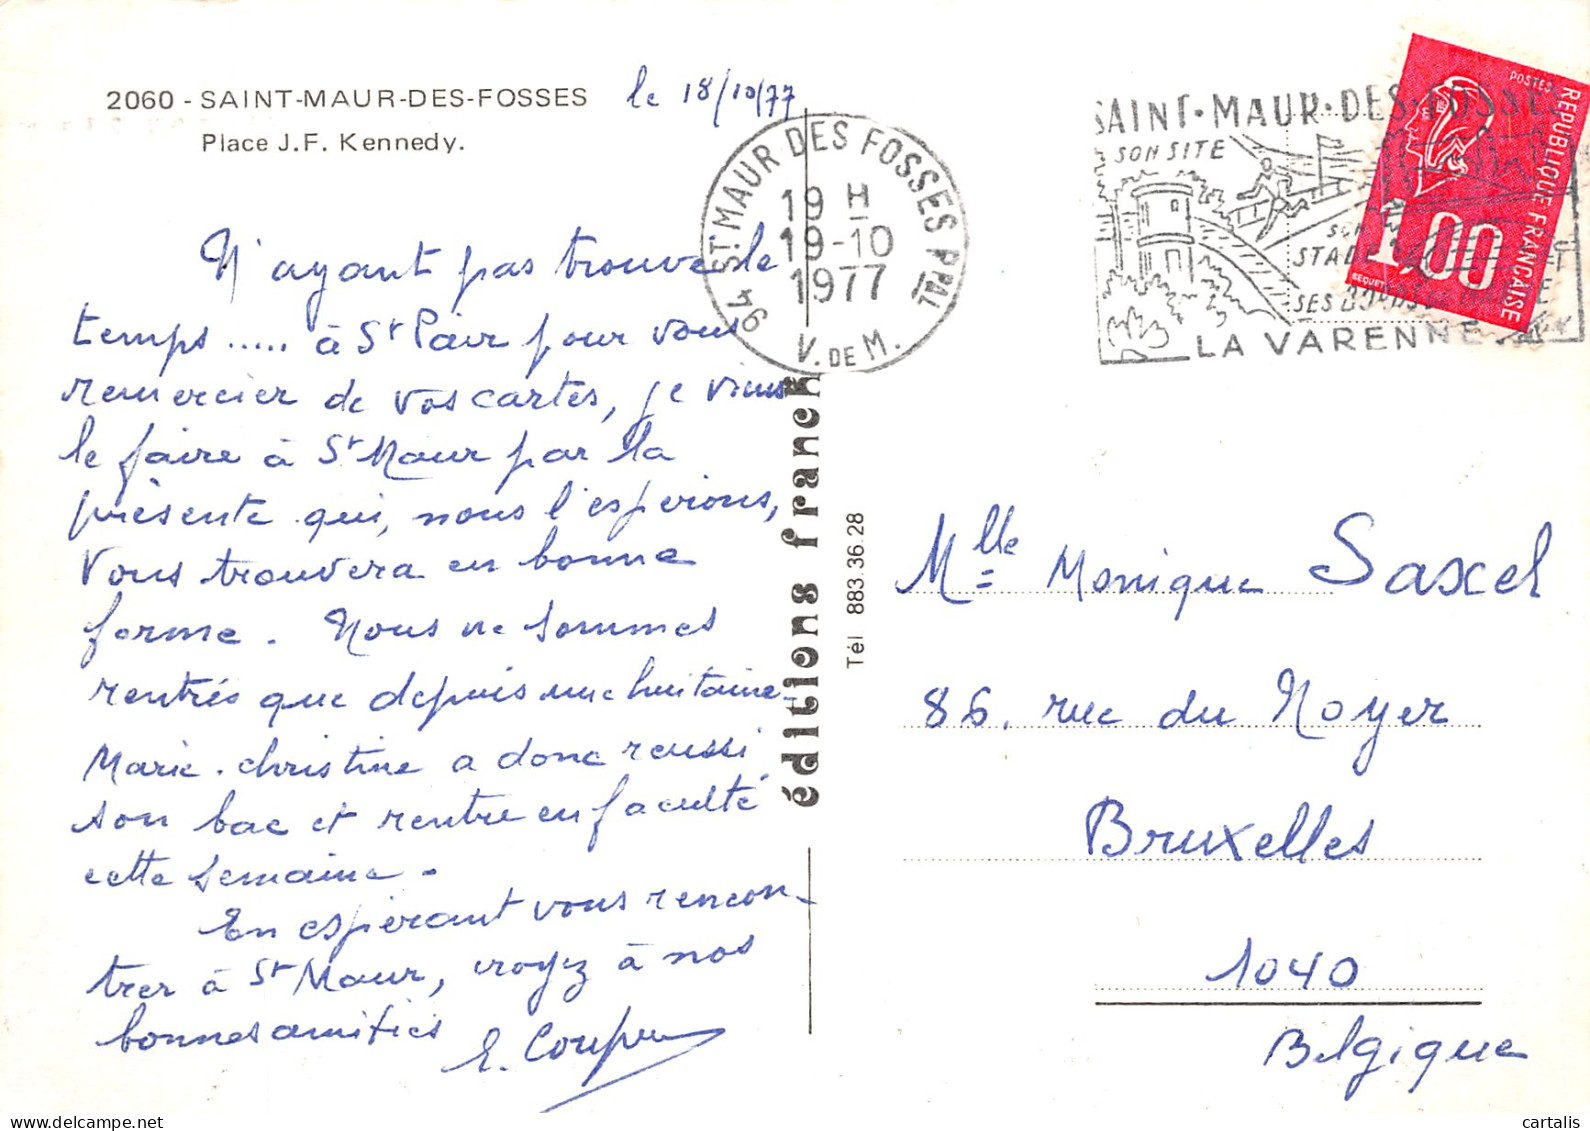 2060 - SAINT-MAUR-DES-FOSSES
Place J.F. Kennedy.
le 18/10/77
N'ayant pas trouvé le
temps ..... à St Pair pour vous
remercier de vos cartes, je viens
le faire à St Maur par la
présente qui, nous l'espérons,
vous trouvera en bonne
forme. Nous ne sommes
rentrés que depuis une huitaine-
Marie-christine a donc reussi
son bac et rentre en faculté
cette semaine -
En espérant vous rencon-
trer à St Maur, croyez à nos
bonnes amitiés
éditions franck
Tél 883.36.28
94 ST. MAUR DES FOSSES PPAL
19 H
19-10
1977
V. DE M.
SAINT·MAUR·DES·FOSSES
SON SITE
SON
STADE
SES BORDS DE MARNE
LA VARENNE
POSTES
REPUBLIQUE FRANÇAISE
1,00
BEQUET
Mlle Monique Saxcel
86, rue du Noyer
Bruxelles
1040
Belgique
cartalis